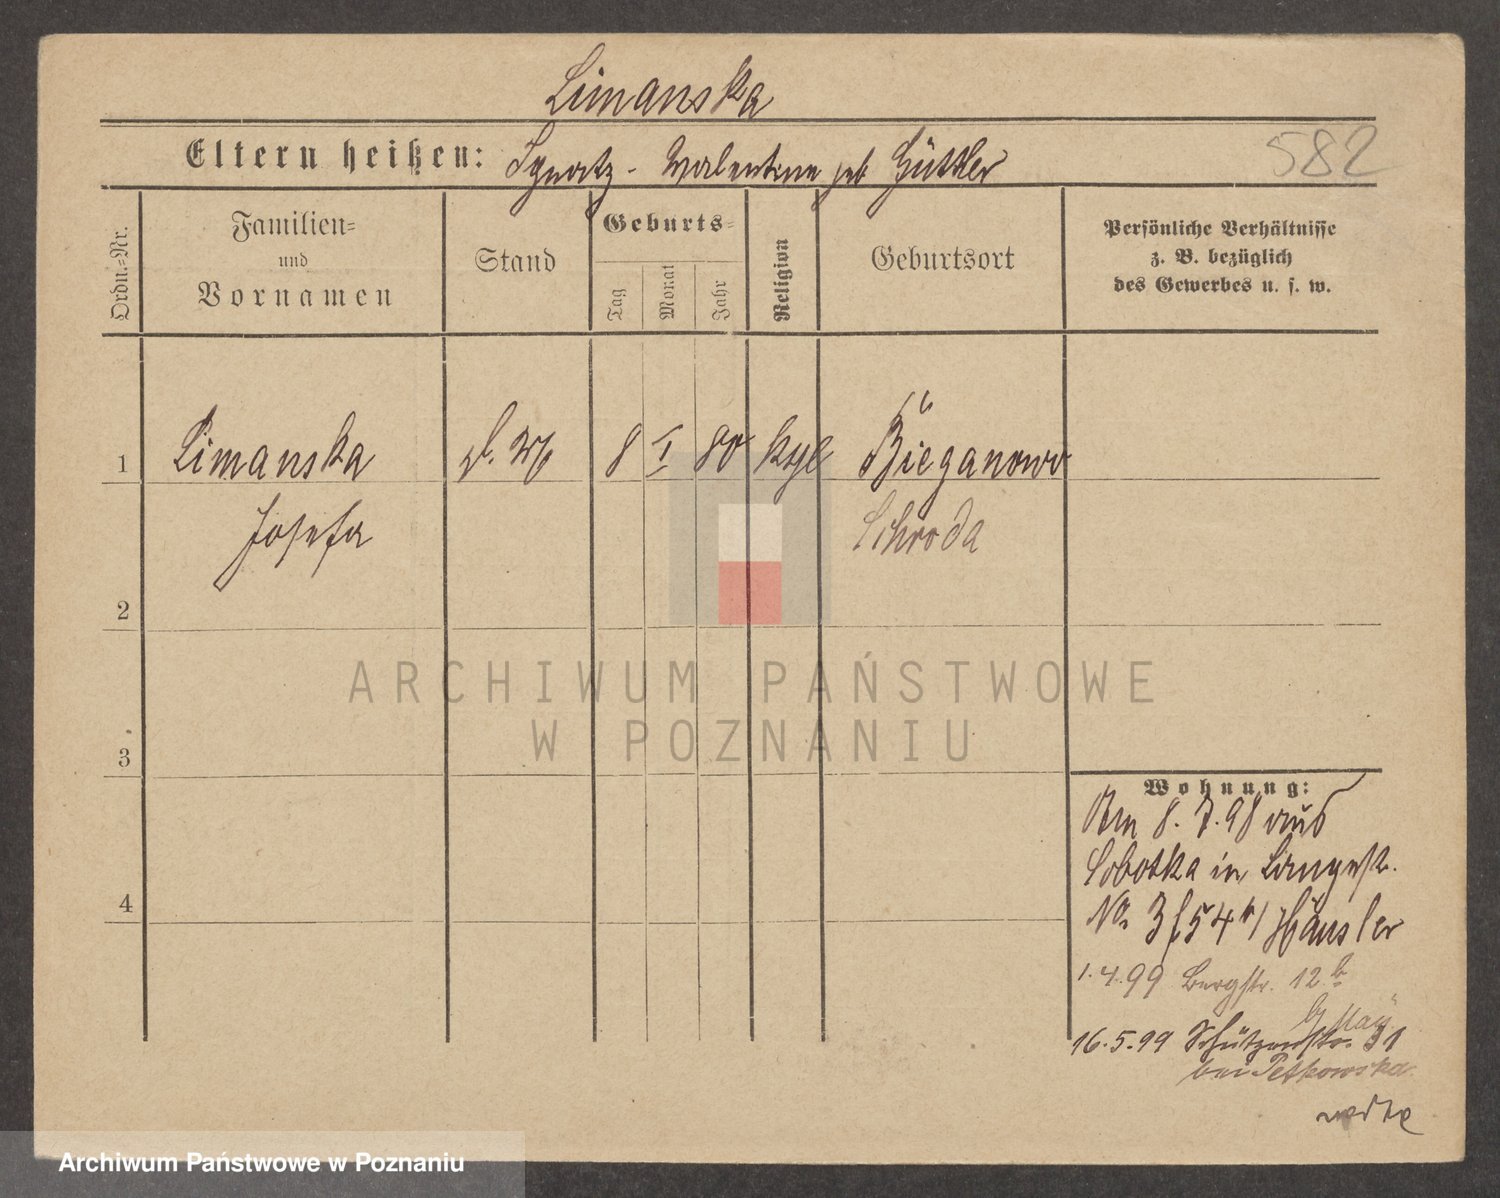 Limanska
582
Eltern heißen: Ignatz - Valentine geb Güttler
Ordn.-Nr.
Familien-
und
Vornamen
Stand
Geburts-
Tag
Monat
Jahr
Religion
Geburtsort
Persönliche Verhältnisse
z. B. bezüglich
des Gewerbes u. s. w.
1 Limanska 8 I 80 Bieganowo
Josefa Schroda
2
3
4
Wohnung:
Am 8. 7. 98 aus
Sobotka in Langestr.
No. 3 (54 Häusler
1.4.99 Bergstr. 12 b
16.5.99 Schützenstr. 31
bei Petkowska
ARCHIWUM PAŃSTWOWE
W POZNANIU
Archiwum Państwowe w Poznaniu